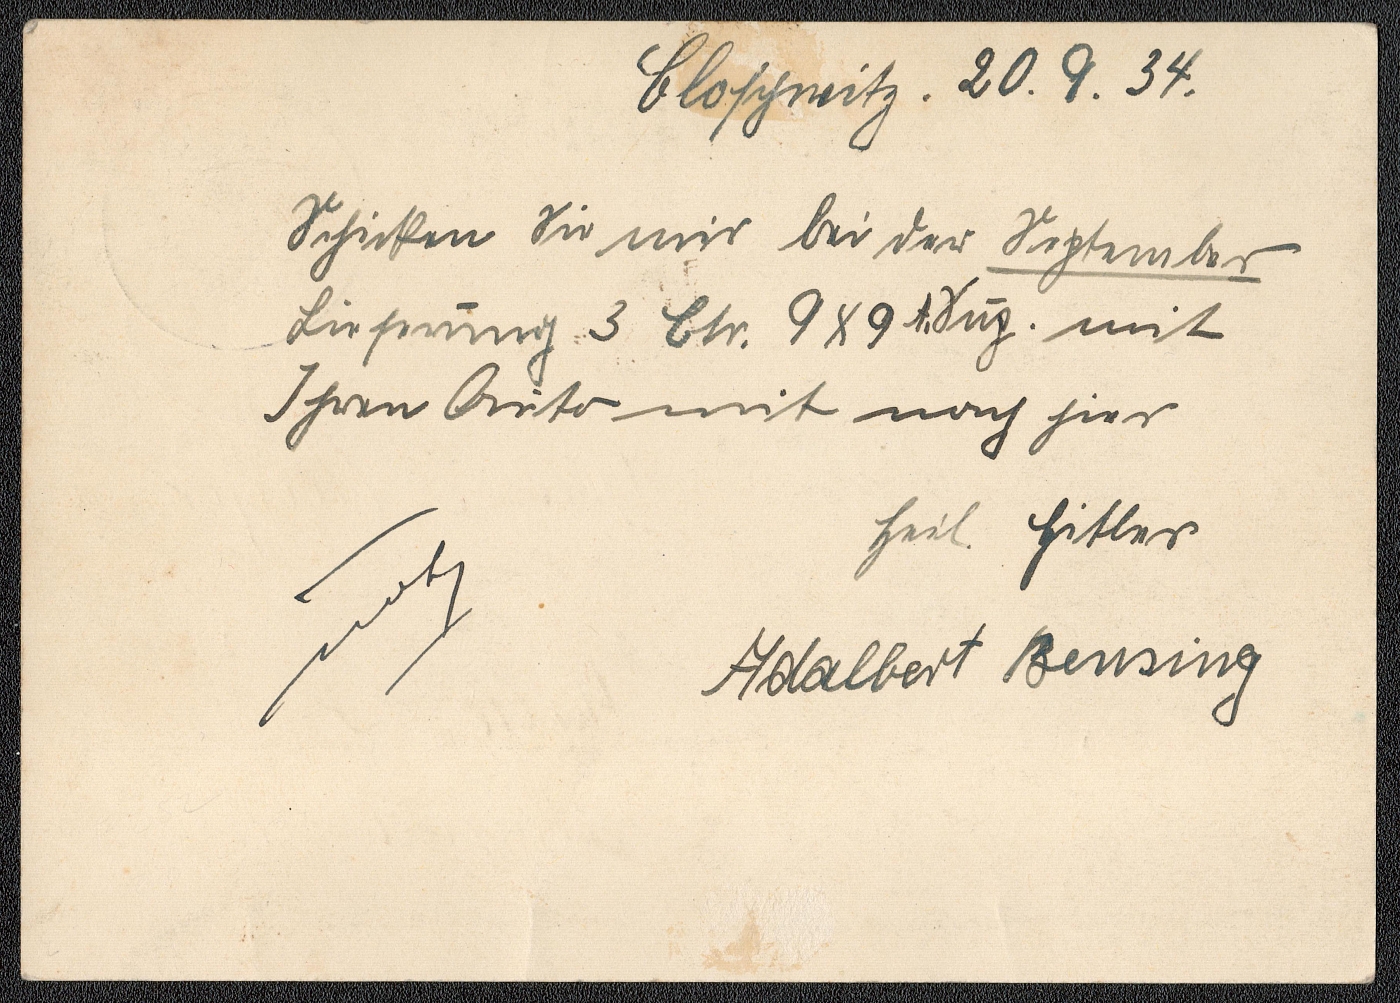 Closchwitz. 20. 9. 34.
Schicken Sie mir bei der September
Lieferung 3 Ctr. 9 X 9 mit
Ihren Auto mit nach hier
Heil Hitler
Adalbert Bensing